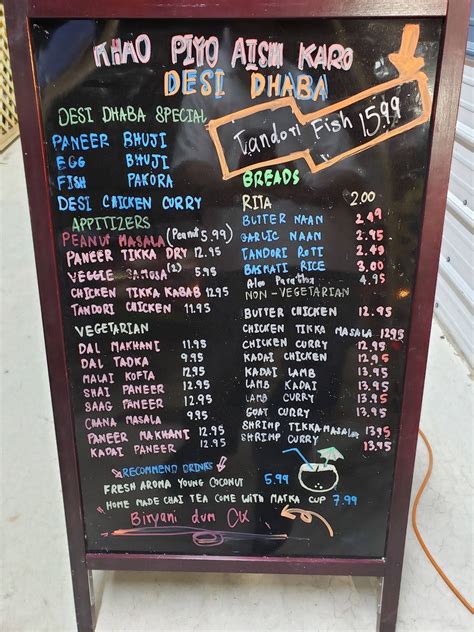 KHAO PIYO AISH KARO
DESI DHABA
Tandori Fish 15.99
DESI DHABA SPECIAL
PANEER BHUJI
EGG BHUJI
FISH PAKORA
DESI CHICKEN CURRY
APPITIZERS
PEANUT MASALA (Peanut 5.99)
PANEER TIKKA DRY 12.95
VEGGIE SAMOSA (2) 5.95
CHICKEN TIKKA KABAB 12.95
TANDORI CHICKEN 11.95
VEGETARIAN
DAL MAKHANI 11.95
DAL TADKA 9.95
MALAI KOFTA 12.95
SHAI PANEER 12.95
SAAG PANEER 12.95
CHANA MASALA 9.95
PANEER MAKHANI 12.95
KADAI PANEER 12.95
BREADS
RITA 2.00
BUTTER NAAN 2.49
GARLIC NAAN 2.95
TANDORI ROTI 2.49
BASMATI RICE 3.00
Aloo Paratha 4.95
NON-VEGETARIAN
BUTTER CHICKEN 12.95
CHICKEN TIKKA MASALA 12.95
CHICKEN CURRY 12.95
KADAI CHICKEN 12.95
KADAI LAMB 13.95
LAMB KADAI 13.95
LAMB CURRY 13.95
GOAT CURRY 13.95
SHRIMP TIKKA MASALA 13.95
SHRIMP CURRY 13.95
RECOMMEND DRINKS
FRESH AROMA YOUNG COCONUT 5.99
HOME MADE CHAI TEA COME WITH MATKA CUP 7.99
Biryani dum